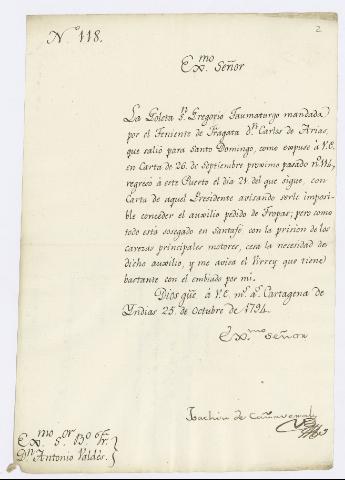 N.º 118.
2
Ex.mo Señor
La Goleta S.n Gregorio Taumaturgo mandada
por el Teniente de Fragata d.n Carlos de Arias,
que salió para Santo Domingo, como expuse à V.E.
en Carta de 26. de Septiembre proximo pasado n.º 114,
regresó à este Puerto el dia 21. del que sigue, con
Carta de aquel Presidente avisando serle imposi-
ble conceder el auxilio pedido de Tropas; pero como
todo está sosegado en Santafé con la prision de los
cavezas principales motores, cesa la necesidad de
dicho auxilio, y me avisa el Virrey que tiene
bastante con el embiado por mi.
Dios gue à V.E. m.s a.s Cartagena de
Yndias 25. de Octubre de 1794.
Ex.mo Señor
Joachin de Cañaveral
Ex.mo S.or B.º Fr.
D.n Antonio Valdès.